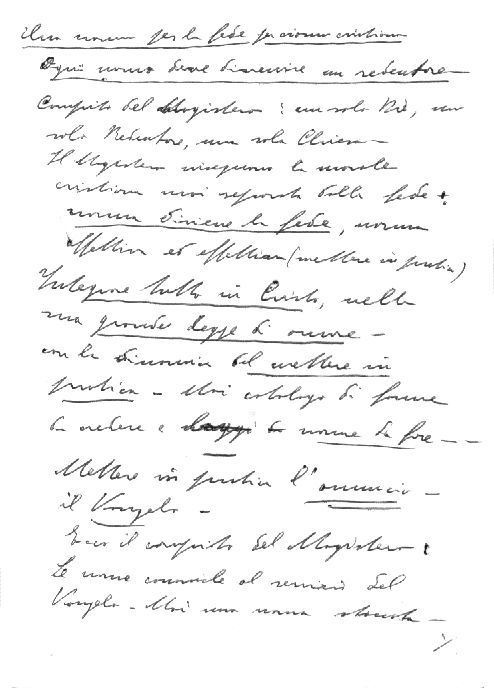 Una norma per la fede per ciascun cristiano
Ogni uomo deve divenire un redentore
Compito del Magistero: un solo Dio, un
solo Redentore, una sola Chiesa -
Il Magistero insegnano la morale
cristiana mai separata dalla fede:
norma diviene la fede, norma
affettiva ed effettiva (mettere in pratica)
Integrare tutto in Cristo, nella
sua grande legge di amore -
con la dinamica del mettere in
pratica - Mai catalogo di forme
da credere e norme da fare - -
Mettere in pratica l'annuncio -
il Vangelo -
Ecco il compito del Magistero:
Le norme al servizio del
Vangelo - Mai una norma staccata -